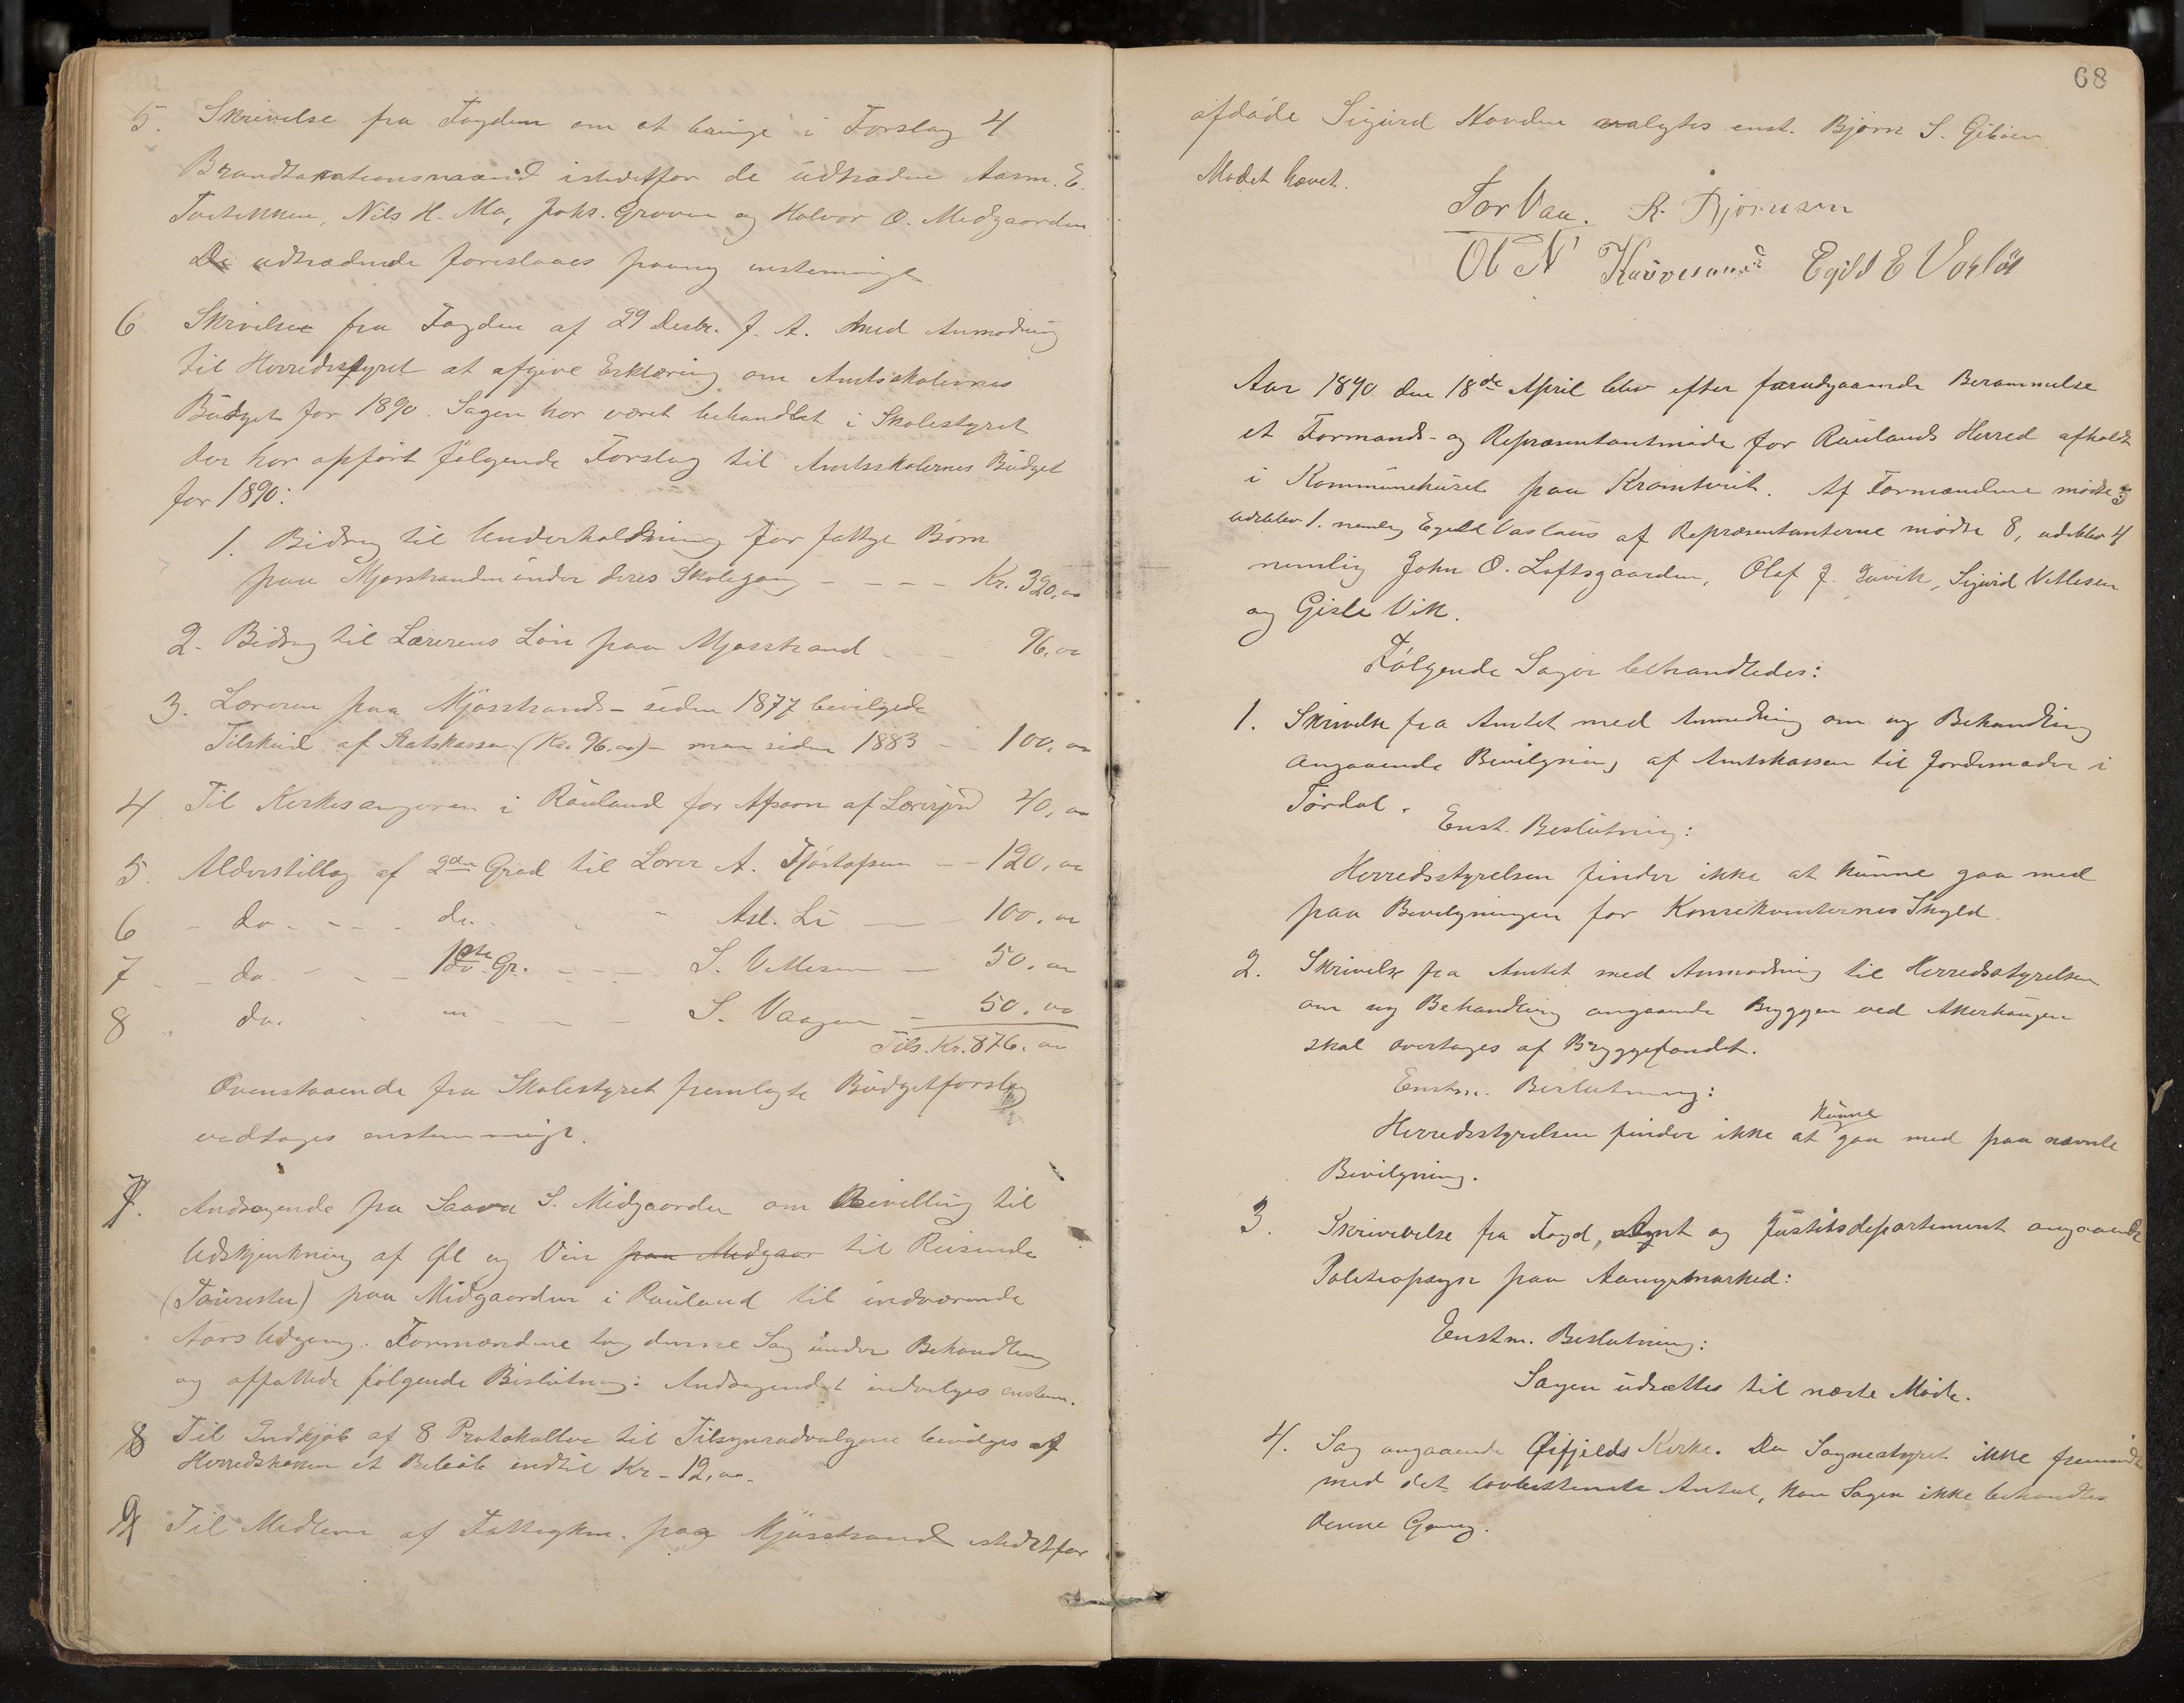 5. Skrivelse fra Fogden om at bringe i Forslag 4
Brandtaxationsmænd istedetfor de udtrædne Aasm. E.
Nils H. Mo, Johs. Groven og Halvor O. Midgaarden
De udtrædende foreslaaes paany enstemmigt
6 Skrivelse fra Fogden af 29 Desbr. f. A. med Anmodning
til Herredsstyret at afgive Erklæring om Amtsskolernes
Budget for 1890. Sagen har været behandlet i Skolestyret
der har opført følgende Forslag til Amtsskolernes Budget
for 1890:
1. Bidrag til Underholdning for fattige Børn
paa Mjøsstranden under deres Skolegang - - - - Kr. 320,00
2. Bidrag til Lærerens Løn paa Mjøsstrand - - 96,00
3. Læreren paa Mjøsstrand - siden 1877 bevilgede
Tilskud af Statskassen (Kr. 96,00) - men siden 1883 - - 100,00
4 Til Kirkesangeren i Rauland for Afsavn af Lærerjord 40,00
5. Alderstillæg af 2den Grad til Lærer A. Tjøstofsen - - 120,00
6 - do - - - - do. - Asl. Li - 100,00
7 - do. - - - 1ste Gr. - - - S. Vetlesen - 50,00
8 " do. - " - - - S. Vaagen - 50,00
Tils. Kr. 876,00
Ovenstaaende fra Skolestyret fremlagte Budgetforslag
vedtages enstemmigt.
7. Andragende fra Saava S. Midgaarden om Bevilling til
Udskjænkning af Øl og Vin paa Midgaar til Reisende
(Tourister) paa Midgaarden i Rauland til indværende
Aars Udgang. Formændene tog denne Sag under Behandling
og affattede følgende Beslutning: Andragendet indvilges enstem.
8 Til Indkjøb af 8 Protokoller til Tilsynsudvalgene bevilges af
Herredskassen et Beløb indtil Kr - 12,00.
9 Til Medlem af Fattigkm. paa Mjøsstrand istedetfor
68
afdøde Sigurd Hovden valgtes enst. Bjørn S. Gibøen
Mødet hævet.
Tor Vaa. K. Bjørnsen
Ol N Egild E Vaslös
Aar 1890 den 18de April blev efter forudgaaende Berammelse
et Formands- og Repræsentantmøde for Raulands Herred afholdt
i Kommunehuset paa Kromtveit. Af Formændene mødte 3
udeblev 1. nemlig Egild Vaslaus af Repræsentanterne mødte 8, udeblev 4
nemlig John O. Loftsgaarden, Olaf J. Gavik, Sigurd Vetlesen
og Gisle Vik.
Følgende Sager behandledes:
1. Skrivelse fra Amtet med Anmodning om ny Behandling
angaaende Bevilgning af Amtskassen til Jordemoder i
Tørdal.
Enst. Beslutning:
Herredsstyrelsen finder ikke at kunne gaa med
paa Bevilgningen for Konsekventsernes Skyld.
2. Skrivelse fra Amtet med Anmodning til Herredsstyrelsen
om ny Behandling angaaende Bryggen ved Akerhaugen
skal overtages af Bryggefondet.
Enstm. Beslutning:
Herredsstyrelsen finder ikke at kunne gaa med paa nævnte
Bevilgning.
3. Skrivelse fra Fogd, Amt og Justitsdepartement angaaende
Politiopsyn paa Aamgemarked:
Enstm. Beslutning:
Sagen udsættes til næste Møde.
4. Sag angaaende Øifjelds Kirke. Da Sognestyret ikke fremmødte
med det lovbestemte Antal, kan Sagen ikke behandles
denne Gang.